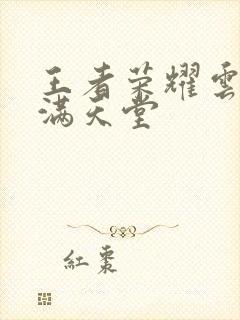 王者荣耀雲
满天堂
紅棗